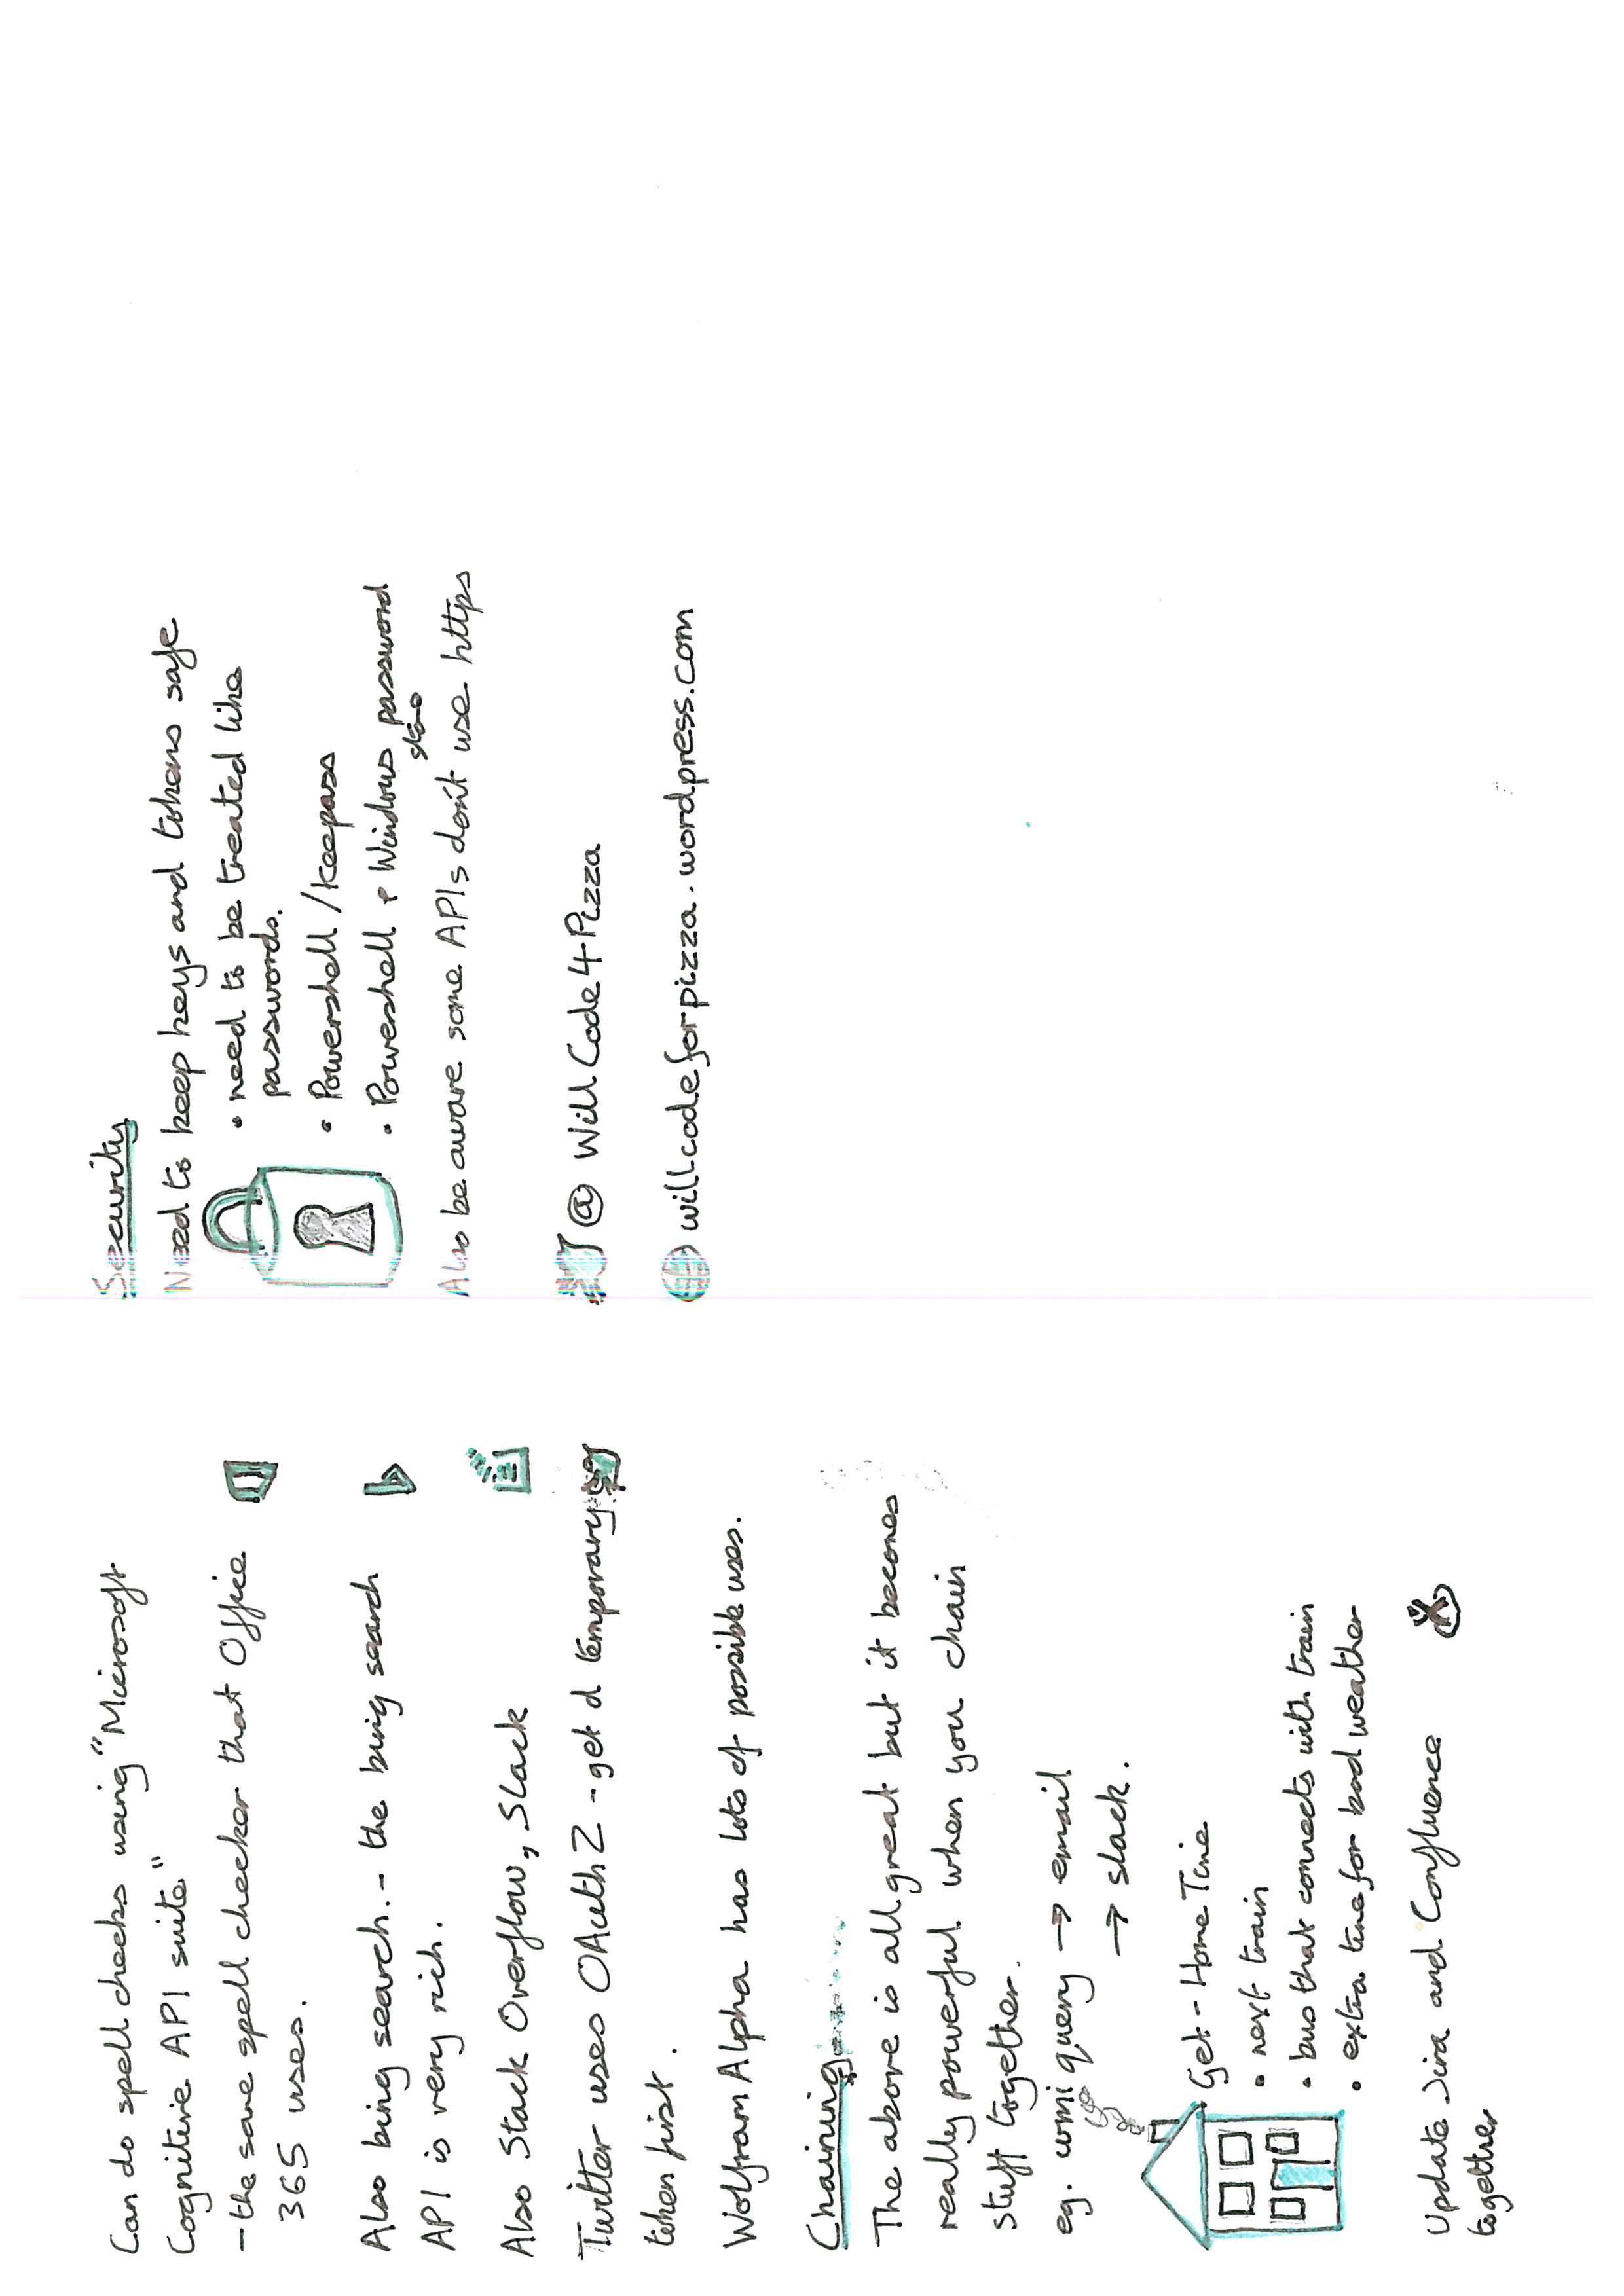 Can do spell checks using "Microsoft
Cognitive API suite"
- the same spell checker that Office
365 uses.
Also bing search. - the bing search
API is very rich.
Also Stack Overflow, Slack
Twitter uses OAuth2 - get a temporary
token first.
Wolfram Alpha has lots of possible uses.
Chaining
The above is all great but it becomes
really powerful when you chain
stuff together.
eg. wmi query → email
→ slack.
Get-HomeTime
• next train
• bus that connects with train
• extra time for bad weather
Update Jira and Confluence
together
Security
Need to keep keys and tokens safe
• need to be treated like
passwords.
• Powershell / Keepass
• Powershell & Windows password
store
Also be aware some APIs don't use https
@ WillCode4Pizza
willcodeforpizza.wordpress.com